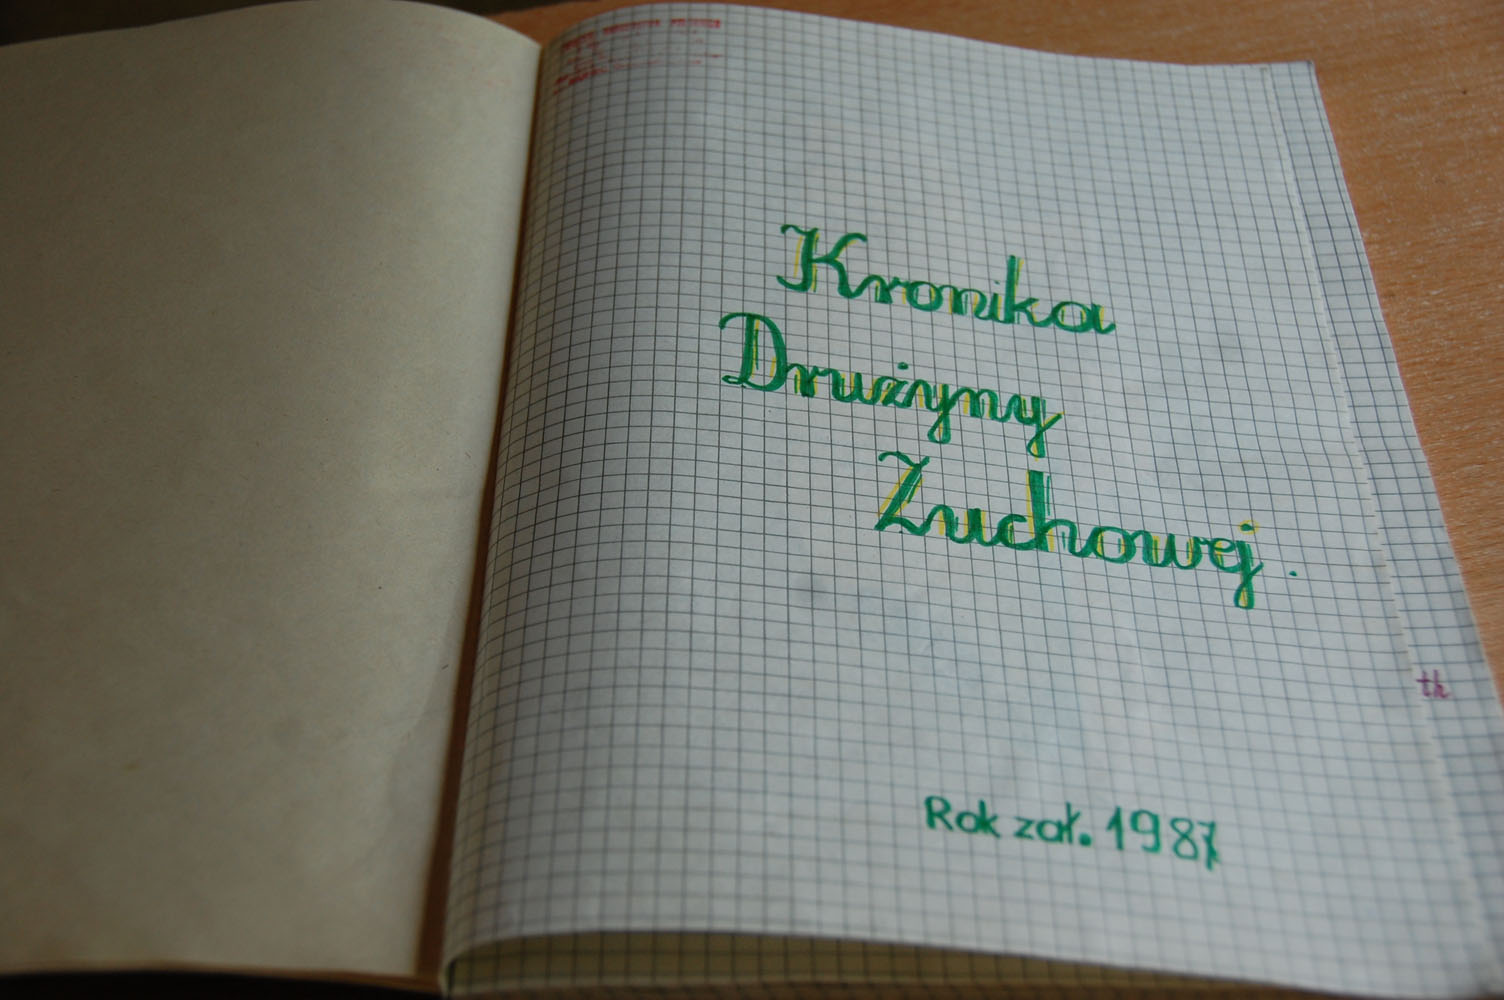 Kronika
Drużyny
Zuchowej.
Rok zał. 1987
th